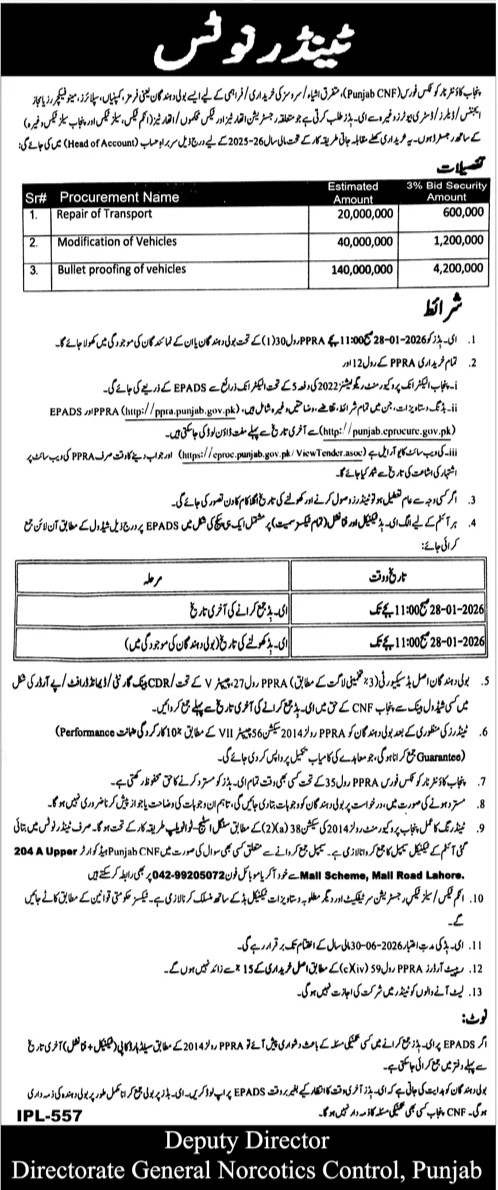 ٹینڈر نوٹس
پنجاب کاؤنٹر نارکوٹکس فورس (Punjab CNF)، متفرق اشیاء/ سروسز کی خریداری/ فراہمی کے لیے ایسے بولی دہندگان یعنی فرمز، کمپنیاں، سپلائرز، مینوفیکچررز یا مجاز
ایجنٹس/ ڈیلرز/ ڈسٹری بیوٹرز وغیرہ سے ای۔بڈز طلب کرتی ہے جو متعلقہ رجسٹریشن اتھارٹیز اور ٹیکس محکموں/ اتھارٹیز (انکم ٹیکس، سیلز ٹیکس اور پنجاب سیلز ٹیکس وغیرہ)
کے ساتھ رجسٹرڈ ہوں۔ یہ خریداری کھلے مقابلہ جاتی طریقہ کار کے تحت مالی سال 26-2025 کے لیے درج ذیل سربراہ حساب (Head of Account) میں کی جائے گی:
تفصیلات
Sr# Procurement Name Estimated Amount 3% Bid Security Amount
1. Repair of Transport 20,000,000 600,000
2. Modification of Vehicles 40,000,000 1,200,000
3. Bullet proofing of vehicles 140,000,000 4,200,000
شرائط
1. ای۔بڈز کو 28-01-2026 صبح 11:00 بجے PPRA رول 30(1) کے تحت بولی دہندگان یا ان کے نمائندگان کی موجودگی میں کھولا جائے گا۔
2. تمام خریداری PPRA کے رول 12 اور
i۔ پنجاب الیکٹرانک پروکیورمنٹ ریگولیشنز 2022 کی دفعہ 5 کے تحت الیکٹرانک ذرائع سے EPADS کے ذریعے کی جائے گی۔
ii۔ بڈنگ دستاویزات، جن میں تمام شرائط، تقاضے، وضاحتیں وغیرہ شامل ہیں، PPRA (http://ppra.punjab.gov.pk) اور EPADS
(http://punjab.eprocure.gov.pk) سے آخری تاریخ سے پہلے مفت ڈاؤن لوڈ کی جا سکتی ہیں۔
iii۔ ویب سائٹ کا یو آر ایل ہے (https://eproc.punjab.gov.pk/ViewTender.asoc) اور جواب دینے کا وقت صرف PPRA کی ویب سائٹ پر
اشتہار کی اشاعت کی تاریخ سے شمار کیا جائے گا۔
3. اگر کسی وجہ سے عام تعطیل ہو تو ٹینڈرز وصول کرنے اور کھولنے کی تاریخ اگلا کام کا دن تصور کی جائے گی۔
4. ہر آئٹم کے لیے الگ ای۔بڈ ٹیکنیکل اور فنانشل (تمام ٹیکسز سمیت) پر مشتمل ایک ہی پیکج کی شکل میں EPADS پر درج ذیل شیڈول کے مطابق آن لائن جمع
کرائی جائے:
مرحلہ تاریخ و وقت
ای۔بڈ جمع کرانے کی آخری تاریخ 28-01-2026 صبح 11:00 بجے تک
ای۔بڈ کھولنے کی تاریخ (بولی دہندگان کی موجودگی میں) 28-01-2026 صبح 11:00 بجے تک
5. بولی دہندگان اصل بڈ سیکیورٹی (3% تخمینی لاگت کے مطابق) PPRA رول 27، چیپٹر V کے تحت CDR/ بینک گارنٹی/ ڈیمانڈ ڈرافٹ/ پے آرڈر کی شکل
میں کسی شیڈول بینک سے پنجاب CNF کے حق میں ای۔بڈ جمع کرانے کی آخری تاریخ سے پہلے جمع کروائیں۔
6. ٹینڈرز کی منظوری کے بعد بولی دہندگان کو PPRA رولز 2014 سیکشن 56 چیپٹر VII کے مطابق 10% کارکردگی ضمانت (Performance
Guarantee) جمع کرانا ہو گی، جو معاہدے کی کامیاب تکمیل پر واپس کر دی جائے گی۔
7. پنجاب کاؤنٹر نارکوٹکس فورس PPRA رول 35 کے تحت کسی بھی وقت تمام ای۔بڈز کو مسترد کرنے کا حق محفوظ رکھتی ہے۔
8. مسترد ہونے کی صورت میں، درخواست پر بولی دہندگان کو وجوہات بتا دی جائیں گی، تاہم ان وجوہات کی وضاحت یا جواز پیش کرنا ضروری نہیں ہوگا۔
9. ٹینڈرنگ کا عمل پنجاب پروکیورمنٹ رولز 2014 کی سیکشن 38(2)(a) کے مطابق سنگل سٹیج۔ ٹو انویلپ طریقہ کار کے تحت ہوگا۔ صرف ٹینڈر نوٹس میں بتائی
گئی آئٹم کے ٹیکنیکل سیمپل کا جمع کروانا لازمی ہے۔ سیمپل جمع کروانے سے متعلق کسی بھی سوال کی صورت میں Punjab CNF ہیڈ کوارٹر 204 A Upper
Mall Scheme, Mall Road Lahore. سے خود آ کر یا موبائل فون 042-99205072 پر بھی رابطہ کر سکتے ہیں
10. انکم ٹیکس/ سیلز ٹیکس رجسٹریشن سرٹیفکیٹ اور دیگر مطلوبہ دستاویزات ٹیکنیکل بڈ کے ساتھ منسلک کرنا لازمی ہے۔ ٹیکسز حکومتی قوانین کے مطابق کاٹے جائیں
گے۔
11. ای۔بڈ کی مدت اعتبار 30-06-2026 مالی سال کے اختتام تک برقرار رہے گی۔
12. ریپیٹ آرڈرز PPRA رول 59(c)(iv) کے مطابق اصل خریداری کے 15% سے زائد نہیں ہوں گے۔
13. لیٹ آنے والوں کو ٹینڈر میں شرکت کی اجازت نہیں ہوگی۔
نوٹ:
اگر EPADS پر ای۔بڈز جمع کرانے میں کسی تکنیکی مسئلہ کے باعث دشواری پیش آئے تو PPRA رولز 2014 کے مطابق سیلڈ ہارڈ کاپی (ٹیکنیکل + فنانشل) آخری تاریخ
سے پہلے دفتر میں جمع کرائی جا سکتی ہے۔
بولی دہندگان کو ہدایت کی جاتی ہے کہ ای۔بڈز آخری وقت کا انتظار کیے بغیر بروقت EPADS پر اپ لوڈ کریں۔ ای۔بڈز پر بولی جمع کرانا مکمل طور پر بولی دہندہ کی ذمہ داری
ہوگی۔ CNF پنجاب کسی بھی تکنیکی مسئلہ کا ذمہ دار نہیں ہوگا۔
IPL-557
Deputy Director
Directorate General Norcotics Control, Punjab